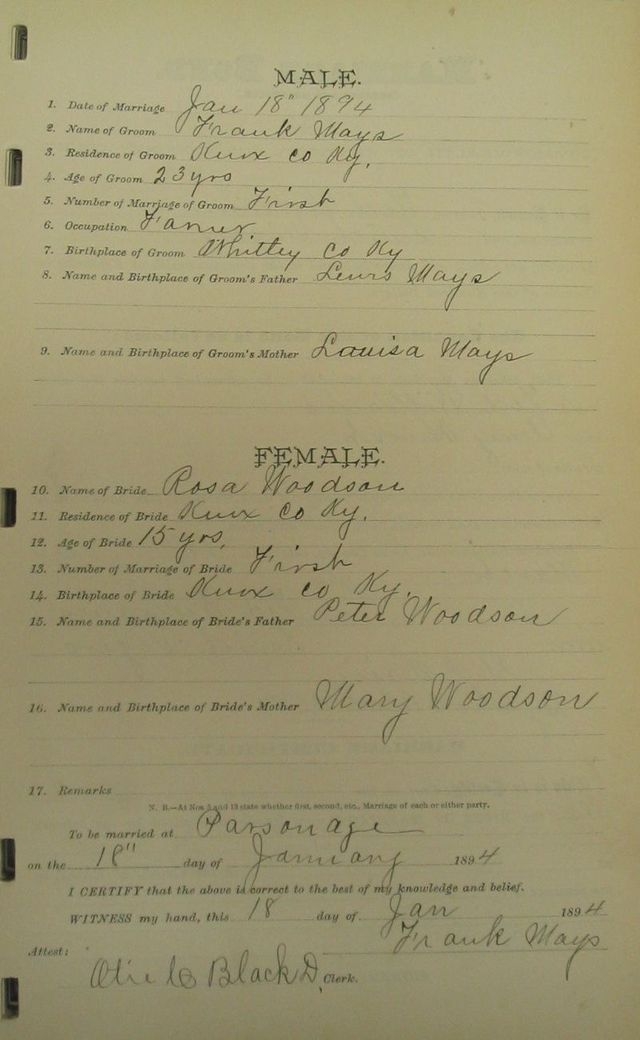 MALE.
1. Date of Marriage Jan 18" 1894
2. Name of Groom Frank Mays
3. Residence of Groom Knox Co Ky.
4. Age of Groom 23 yrs
5. Number of Marriage of Groom First
6. Occupation Famer
7. Birthplace of Groom Whitley Co Ky
8. Name and Birthplace of Groom's Father Lewis Mays
9. Name and Birthplace of Groom's Mother Lauisa Mays
FEMALE.
10. Name of Bride Rosa Woodson
11. Residence of Bride Knox Co Ky.
12. Age of Bride 15 yrs,
13. Number of Marriage of Bride First
14. Birthplace of Bride Knox Co Ky.
15. Name and Birthplace of Bride's Father Peter Woodson
16. Name and Birthplace of Bride's Mother Mary Woodson
17. Remarks
N. B.—At Nos 5 and 13 state whether first, second, etc., Marriage of each or either party.
To be married at Parsonage
on the 18" day of January 1894
I CERTIFY that the above is correct to the best of my knowledge and belief.
WITNESS my hand, this 18 day of Jan 1894
Frank Mays
Attest:
Black D, Clerk.